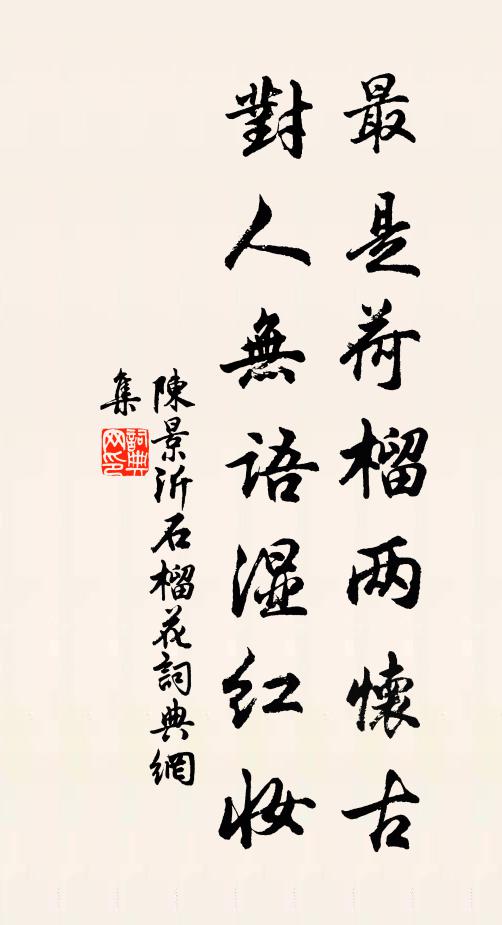 最是荷榴两懷古
對人無語湿红妝
陳景沂石榴花詞典網
集
詞典网印